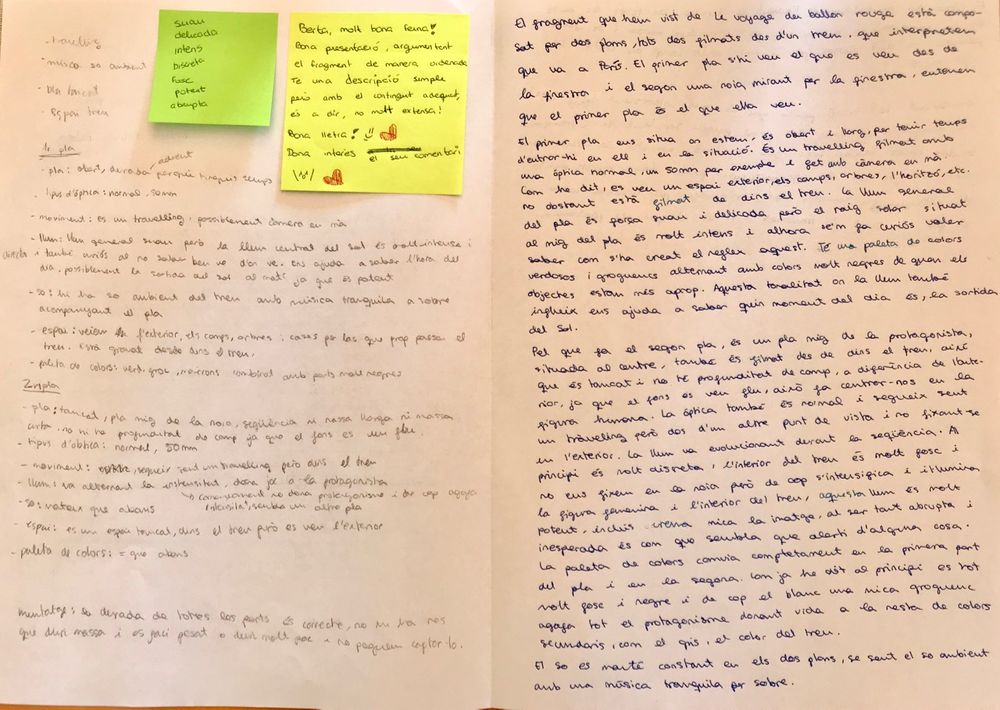 - travelling
- música so ambient
- pla tancat
- Espai tren
suau
delicada
intens
discreta
fosc
potent
abrupta
Berta, molt bona feina!
Bona presentació, argumentant
el fragment de manera ordenada
Te una descripció simple
però amb el contingut adequat,
és a dir, no molt extensa!
Bona lletra!
Dona interès el seu comentari
1r pla
- pla: obert, durada perquè tinguis temps
- tipus d'òptica: normal, 50mm
- moviment: es un travelling, possiblement càmera en mà
- llum: llum general suau però la llum central del sol és molt intensa i
directa i també curiós al no saber ben ve d'on ve. Ens ajuda a saber l'hora del
dia, possiblement la sortida del sol al matí ja que és potent
- so: hi ha so ambient del tren amb música tranquila a sobre
acompanyant el pla
- espai: veiem l'exterior, els camps, arbres i cases per les que prop passa el
tren. Està gravat desde dins el tren.
- paleta de colors: verd, groc, marrons combinat amb parts molt negres
2n pla
- pla: tancat, pla mig de la noia, seqüència ni massa llarga ni massa
curta. no hi ha profunditat de camp ja que el fons es veu flu.
- tipus d'òbtica: normal, 50mm
- moviment: segueix sent un travelling però dins el tren
- llum: va alternant la intensitat, dona joc a la protagonista
començament no dona protagonisme i de cop agafa
intensitat, sembla un altre pla
- so: mateix que abans
- espai: es un espai tancat, dins el tren però es veu l'exterior
- paleta de colors: = que abans
muntatge: la durada de totes les parts és correcte, no hi ha res
que duri massa i es faci pesat o duri molt poc i no poguem captar-lo.
El fragment que hem vist de Le voyage du ballon rouge està compo-
sat per dos plans, tots dos filmats des d'un tren, que interpretem
que va a París. El primer pla s'hi veu el que es veu des de
la finestra i el segon una noia mirant per la finestra, entenem
que el primer pla és el que ella veu.
El primer pla ens situa on estem, és obert i llarg, per tenir temps
d'entrar-hi en ell i en la situació. És un travelling filmat amb
una òptica normal, un 50mm per exemple i fet amb càmera en mà.
Com he dit, es veu un espai exterior, els camps, arbres, l'horitzó, etc.
no obstant està filmat de dins el tren. La llum general
del pla és força suau i delicada però el raig solar situat
al mig del pla és molt intens i alhora se'm fa curiós voler
saber com s'ha creat el reflex aquest. Té una paleta de colors
verdosos i groguencs alternant amb colors molt negres de quan els
objectes estan més aprop. Aquesta tonalitat on la llum també
influeix ens ajuda a saber quin moment del dia és, la sortida
del sol.
Pel que fa el segon pla, és un pla mig de la protagonista,
situada al centre, també és filmat des de dins el tren, així
que és tancat i no té profunditat de camp, a diferència de l'ante-
rior, ja que el fons es veu flu, això fa centrar-nos en la
figura humana. La òptica també és normal i segueix sent
un travelling però dos d'un altre punt de vista i no fixant-se
en l'exterior. La llum va evolucionant durant la seqüència. Al
principi és molt discreta, l'interior del tren és molt fosc i
no ens fixem en la noia però de cop s'intensifica i il·lumina
la figura femenina i l'interior del tren, aquesta llum és molt
potent, inclús crema mica la imatge, al ser tant abrupta i
inesperada és com que sembla que alerti d'alguna cosa.
La paleta de colors canvia completament en la primera part
del pla i en la segona. Com ja he dit al principi es tot
molt fosc i negre i de cop el blanc una mica groguenc
agafa tot el protagonisme donant vida a la resta de colors
secundaris, com el gris, et color del tren.
El so es manté constant en els dos plans, se sent el so ambient
amb una música tranquila per sobre.